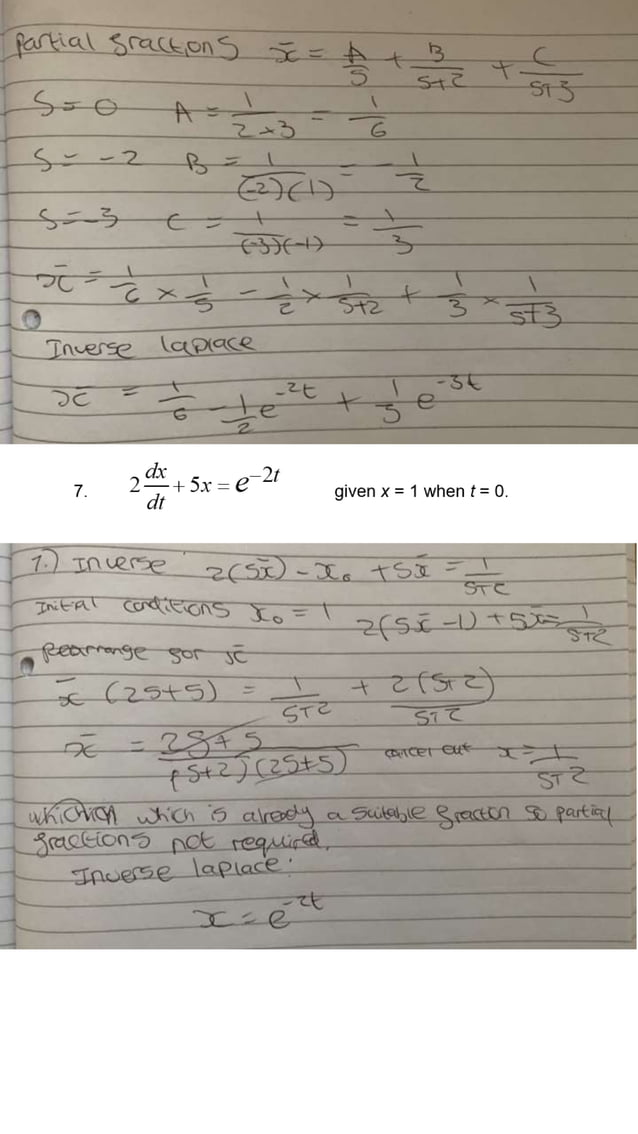 Partial fractions x̄ = A/S + B/S+2 + C/S+3
S = 0 A = 1/2×3 = 1/6
S = -2 B = 1/(-2)(1) = -1/2
S = -3 C = 1/(-3)(-1) = 1/3
x̄ = 1/6 × 1/S - 1/2 × 1/S+2 + 1/3 × 1/S+3
Inverse laplace
x̄ = 1/6 - 1/2 e^-2t + 1/3 e^-3t
7. 2 dx/dt + 5x = e^-2t given x = 1 when t = 0.
7.) Inverse 2(Sx̄) - x₀ + 5x̄ = 1/S+2
Initial conditions x₀ = 1 2(Sx̄ - 1) + 5x̄ = 1/S+2
Rearrange for x̄
x̄ (2S+5) = 1/S+2 + 2(S+2)/S+2
x̄ = 2S+5/(S+2)(2S+5) cancel out x = 1/S+2
which is already a suitable fracton so partial
fractions not required.
Inverse laplace:
x = e^-2t